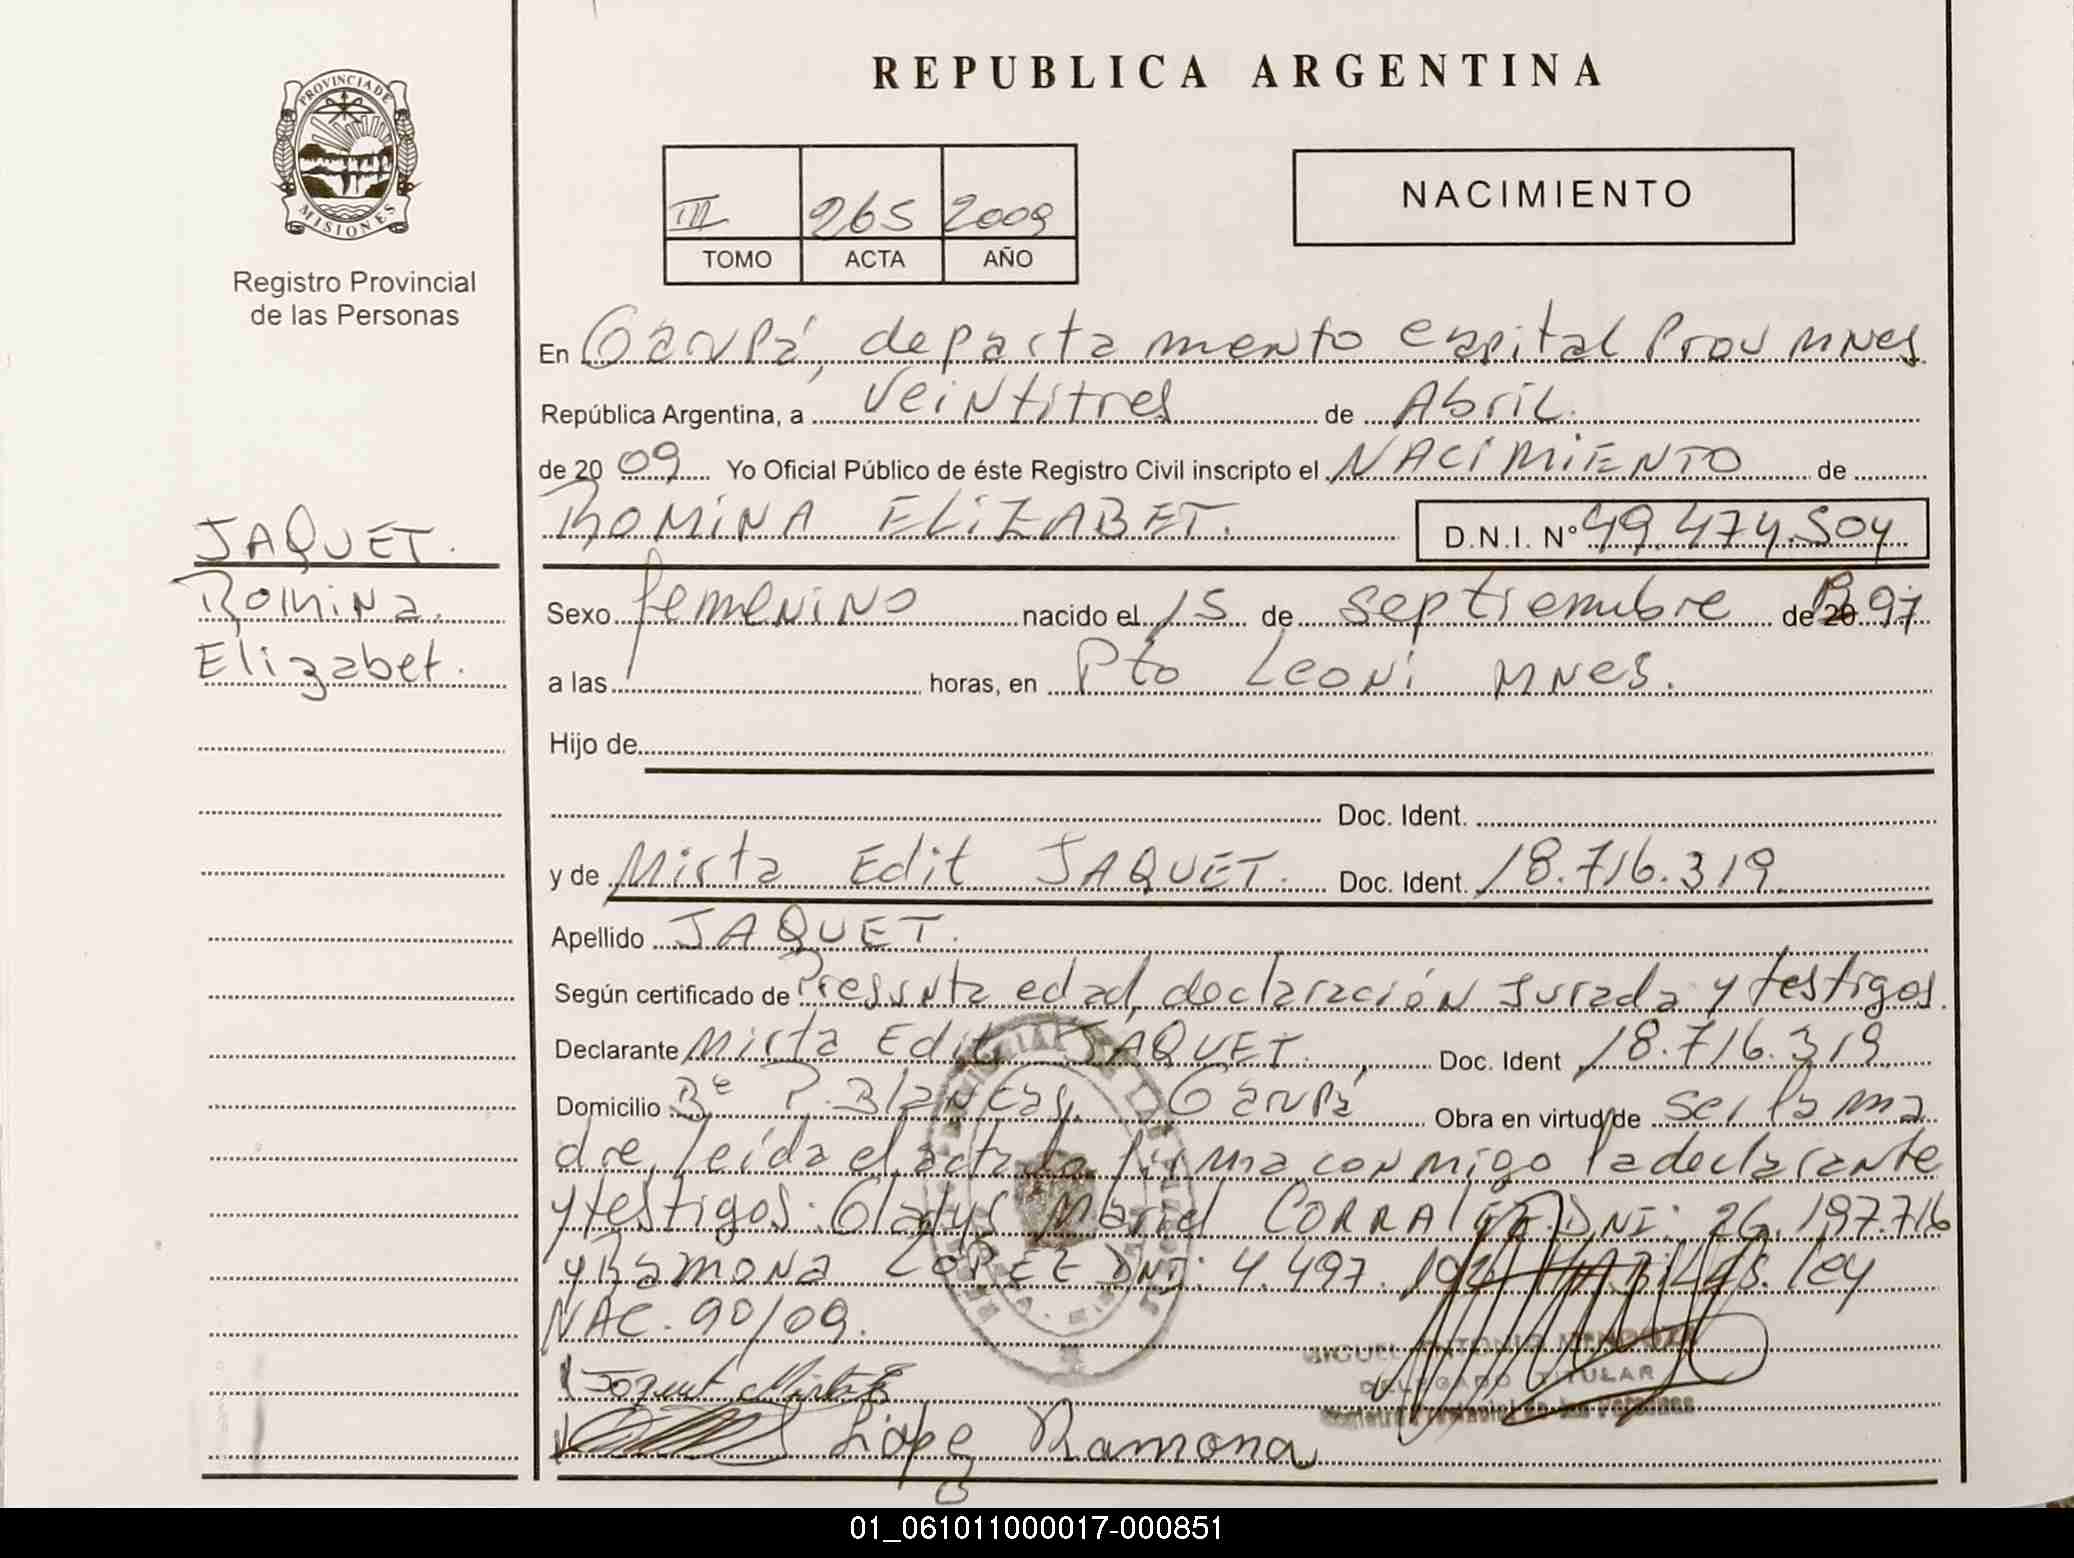 PROVINCIA DE
MISIONES
Registro Provincial
de las Personas
REPUBLICA ARGENTINA
III 265 2009
TOMO ACTA AÑO
NACIMIENTO
JAQUET.
Romina.
Elizabet.
En Garupá, departamento capital Prov Mnes.
República Argentina, a veintitres de Abril.
de 20 09 Yo Oficial Público de éste Registro Civil inscripto el NACIMIENTO de
ROMINA ELIZABET. D.N.I. Nº 49.474.504
Sexo femenino nacido el 15 de septiembre de 20 97
a las horas, en Pto Leoni Mnes.
Hijo de
Doc. Ident.
y de Mirta Edit JAQUET. Doc. Ident. 18.716.319
Apellido JAQUET.
Según certificado de Presunta edad, declaración Jurada y testigos.
Declarante Mirta Edit JAQUET. Doc. Ident 18.716.319
Domicilio Bº P. Blancas, Garupá Obra en virtud de ser la ma
dre, leída el acta la firma conmigo la declarante
y testigos: Gladys Mariel CORRALES DNI: 26.197.716
y Ramona LOPEZ DNI: 4.497. HABILES. ley
NAC. 90/09.
Jaquet Mirta E
MIGUEL ANTONIO
DELEGADO TITULAR
Registro Provincial de las Personas
López Ramona
01_061011000017-000851